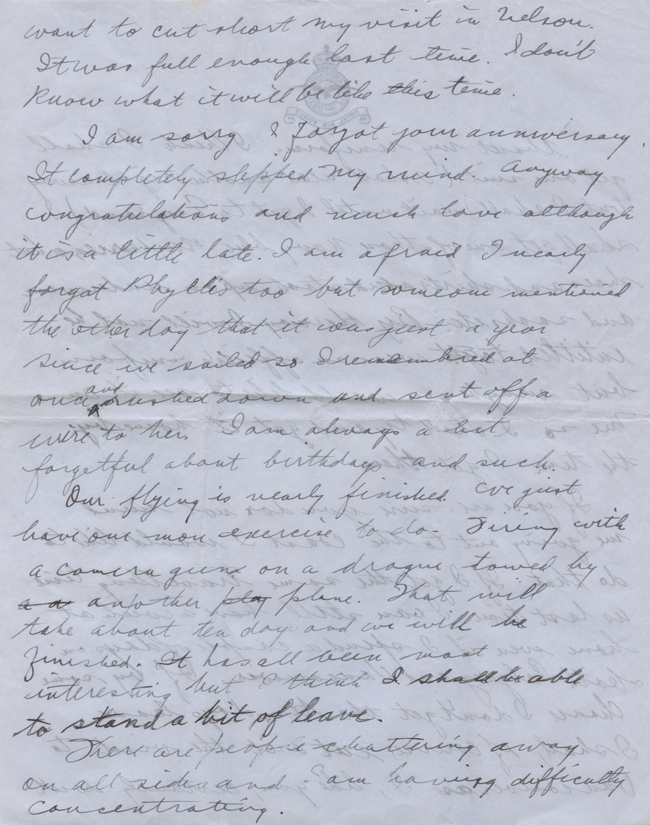 want to cut short my visit in Nelson.
It was full enough last time. I don't
know what it will be like this time.
I am sorry I forgot your anniversary.
It completely slipped my mind. Anyway
congratulations and much love although
it is a little late. I am afraid I nearly
forgot Phyllis too but someone mentioned
the other day that it was just a year
since we sailed so I remembered at
once and rushed down and sent off a
wire to her. I am always a bit
forgetful about birthdays and such.
Our flying is nearly finished. We just
have one more exercise to do. Firing with
a camera gun on a drogue towed by
another plane. That will
take about ten day and we will be
finished. It has all been most
interesting but I think I shall be able
to stand a bit of leave.
There are people chattering away
on all sides and I am having difficulty
concentrating.